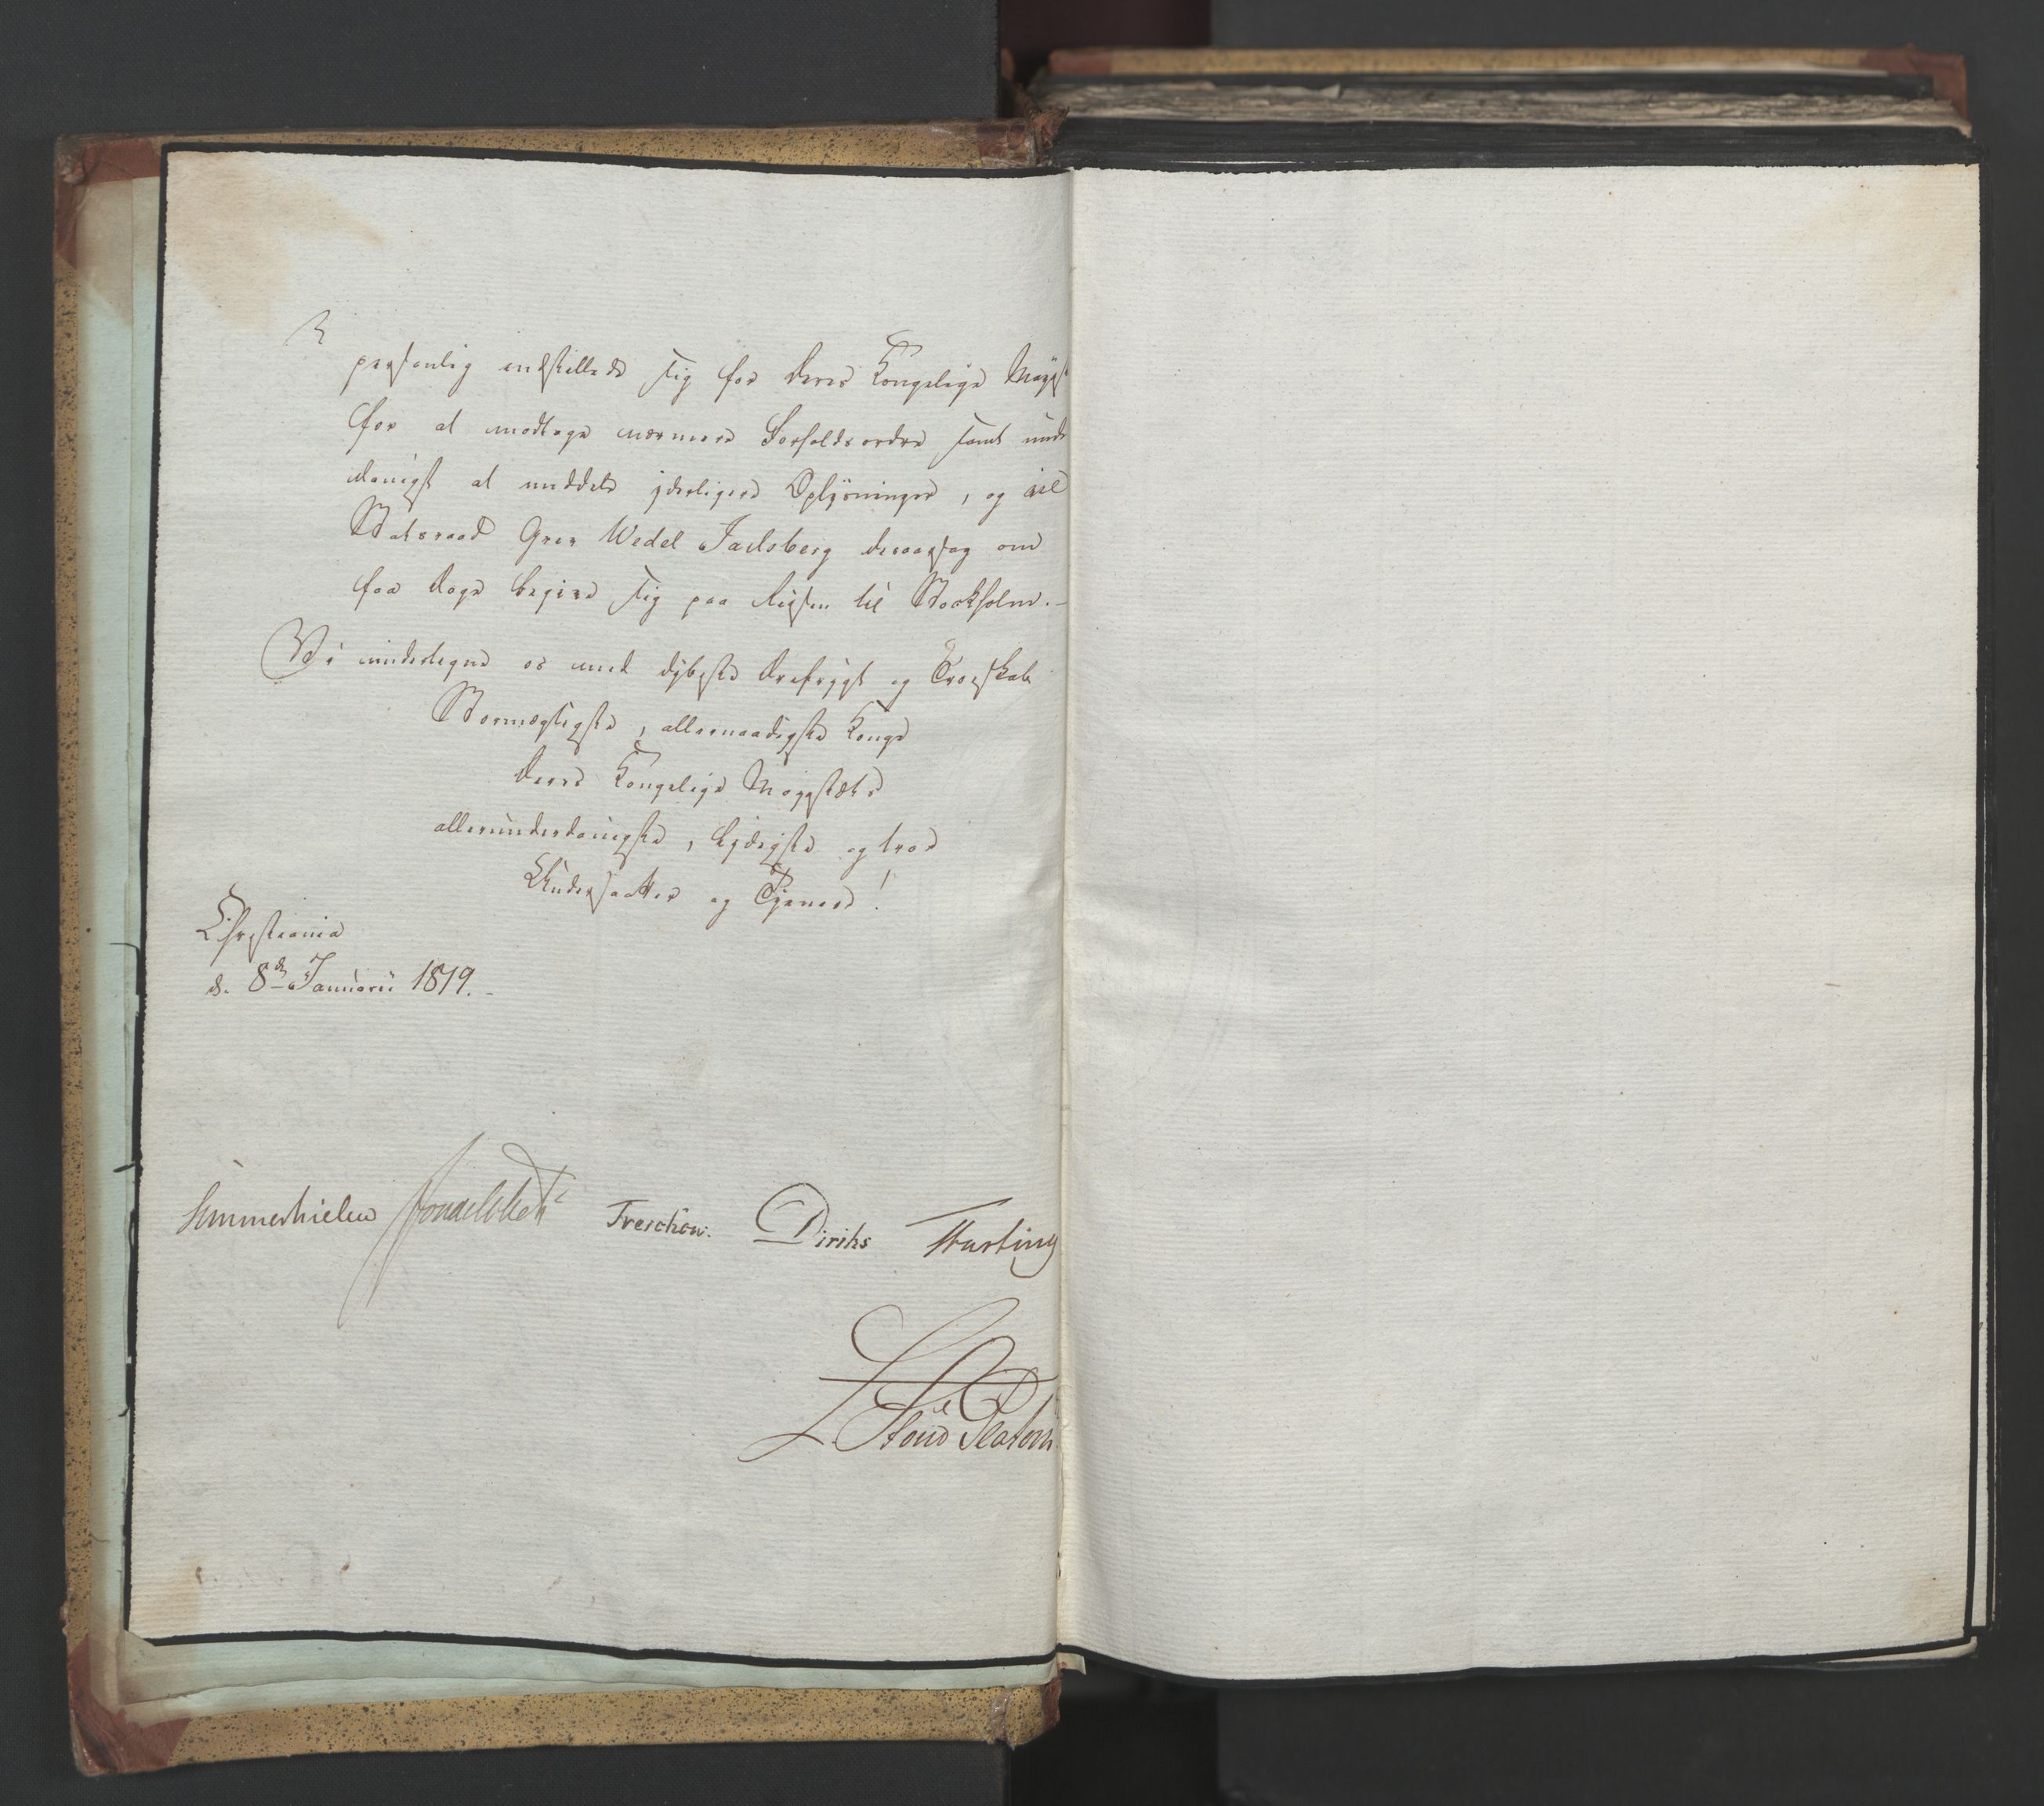 personlig indstillede sig for Deres Kongelige Maje
for at modtage nærmere Forholdsordre samt unde
danigst at meddele yderligere Oplysninger, og vil
Statsraad Grev Wedel Jarlsberg desaarsag om
faa Dage begive sig paa Reisen til Stockholm.-
Vi undertegne os med dybeste Ærefrygt og Troeskab
Stormægtigste, allernaadigste Konge
Deres Kongelige Majestæts
allerunderdanigste, lydigste og troe
Undersaatter og Tjenere!
Christiania
d. 8de Januarii 1819.-
Sommerhielm Treschow. Diriks Fasting